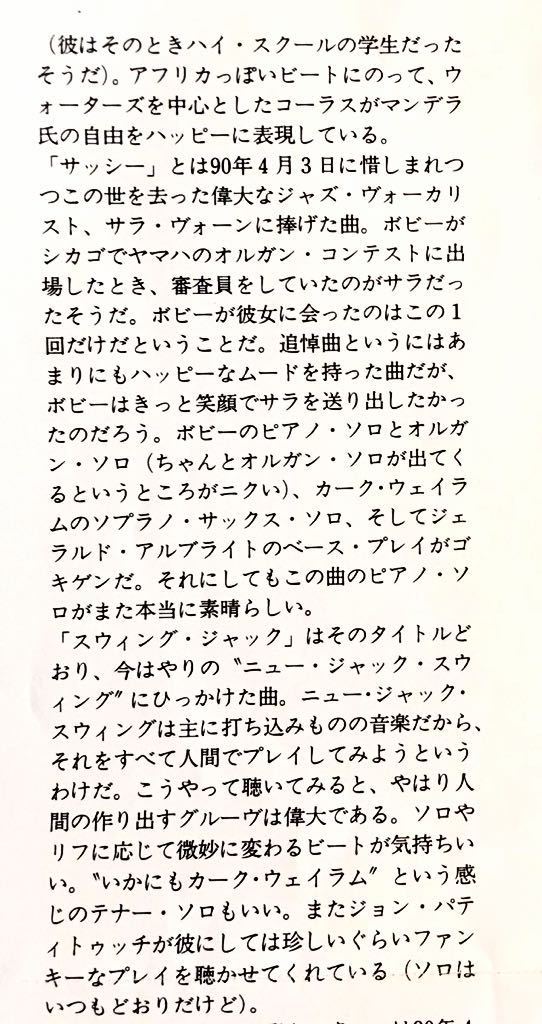 （彼はそのときハイ・スクールの学生だった
そうだ）。アフリカっぽいビートにのって、ウ
ォーターズを中心としたコーラスがマンデラ
氏の自由をハッピーに表現している。
「サッシー」とは90年４月３日に惜しまれつ
つこの世を去った偉大なジャズ・ヴォーカリ
スト、サラ・ヴォーンに捧げた曲。ボビーが
シカゴでヤマハのオルガン・コンテストに出
場したとき、審査員をしていたのがサラだっ
たそうだ。ボビーが彼女に会ったのはこの１
回だけだということだ。追悼曲というにはあ
まりにもハッピーなムードを持った曲だが、
ボビーはきっと笑顔でサラを送り出したかっ
たのだろう。ボビーのピアノ・ソロとオルガ
ン・ソロ（ちゃんとオルガン・ソロが出てく
るというところがニクい）、カーク・ウェイラ
ムのソプラノ・サックス・ソロ、そしてジェ
ラルド・アルブライトのベース・プレイがゴ
キゲンだ。それにしてもこの曲のピアノ・ソ
ロがまた本当に素晴らしい。
「スウィング・ジャック」はそのタイトルど
おり、今はやりの〝ニュー・ジャック・スウ
ィング〟にひっかけた曲。ニュー・ジャック・
スウィングは主に打ち込みものの音楽だから、
それをすべて人間でプレイしてみようという
わけだ。こうやって聴いてみると、やはり人
間の作り出すグルーヴは偉大である。ソロや
リフに応じて微妙に変わるビートが気持ちい
い。〝いかにもカーク・ウェイラム〟という感
じのテナー・ソロもいい。またジョン・パテ
ィトゥッチが彼にしては珍しいぐらいファン
キーなプレイを聴かせてくれている（ソロは
いつもどおりだけど）。